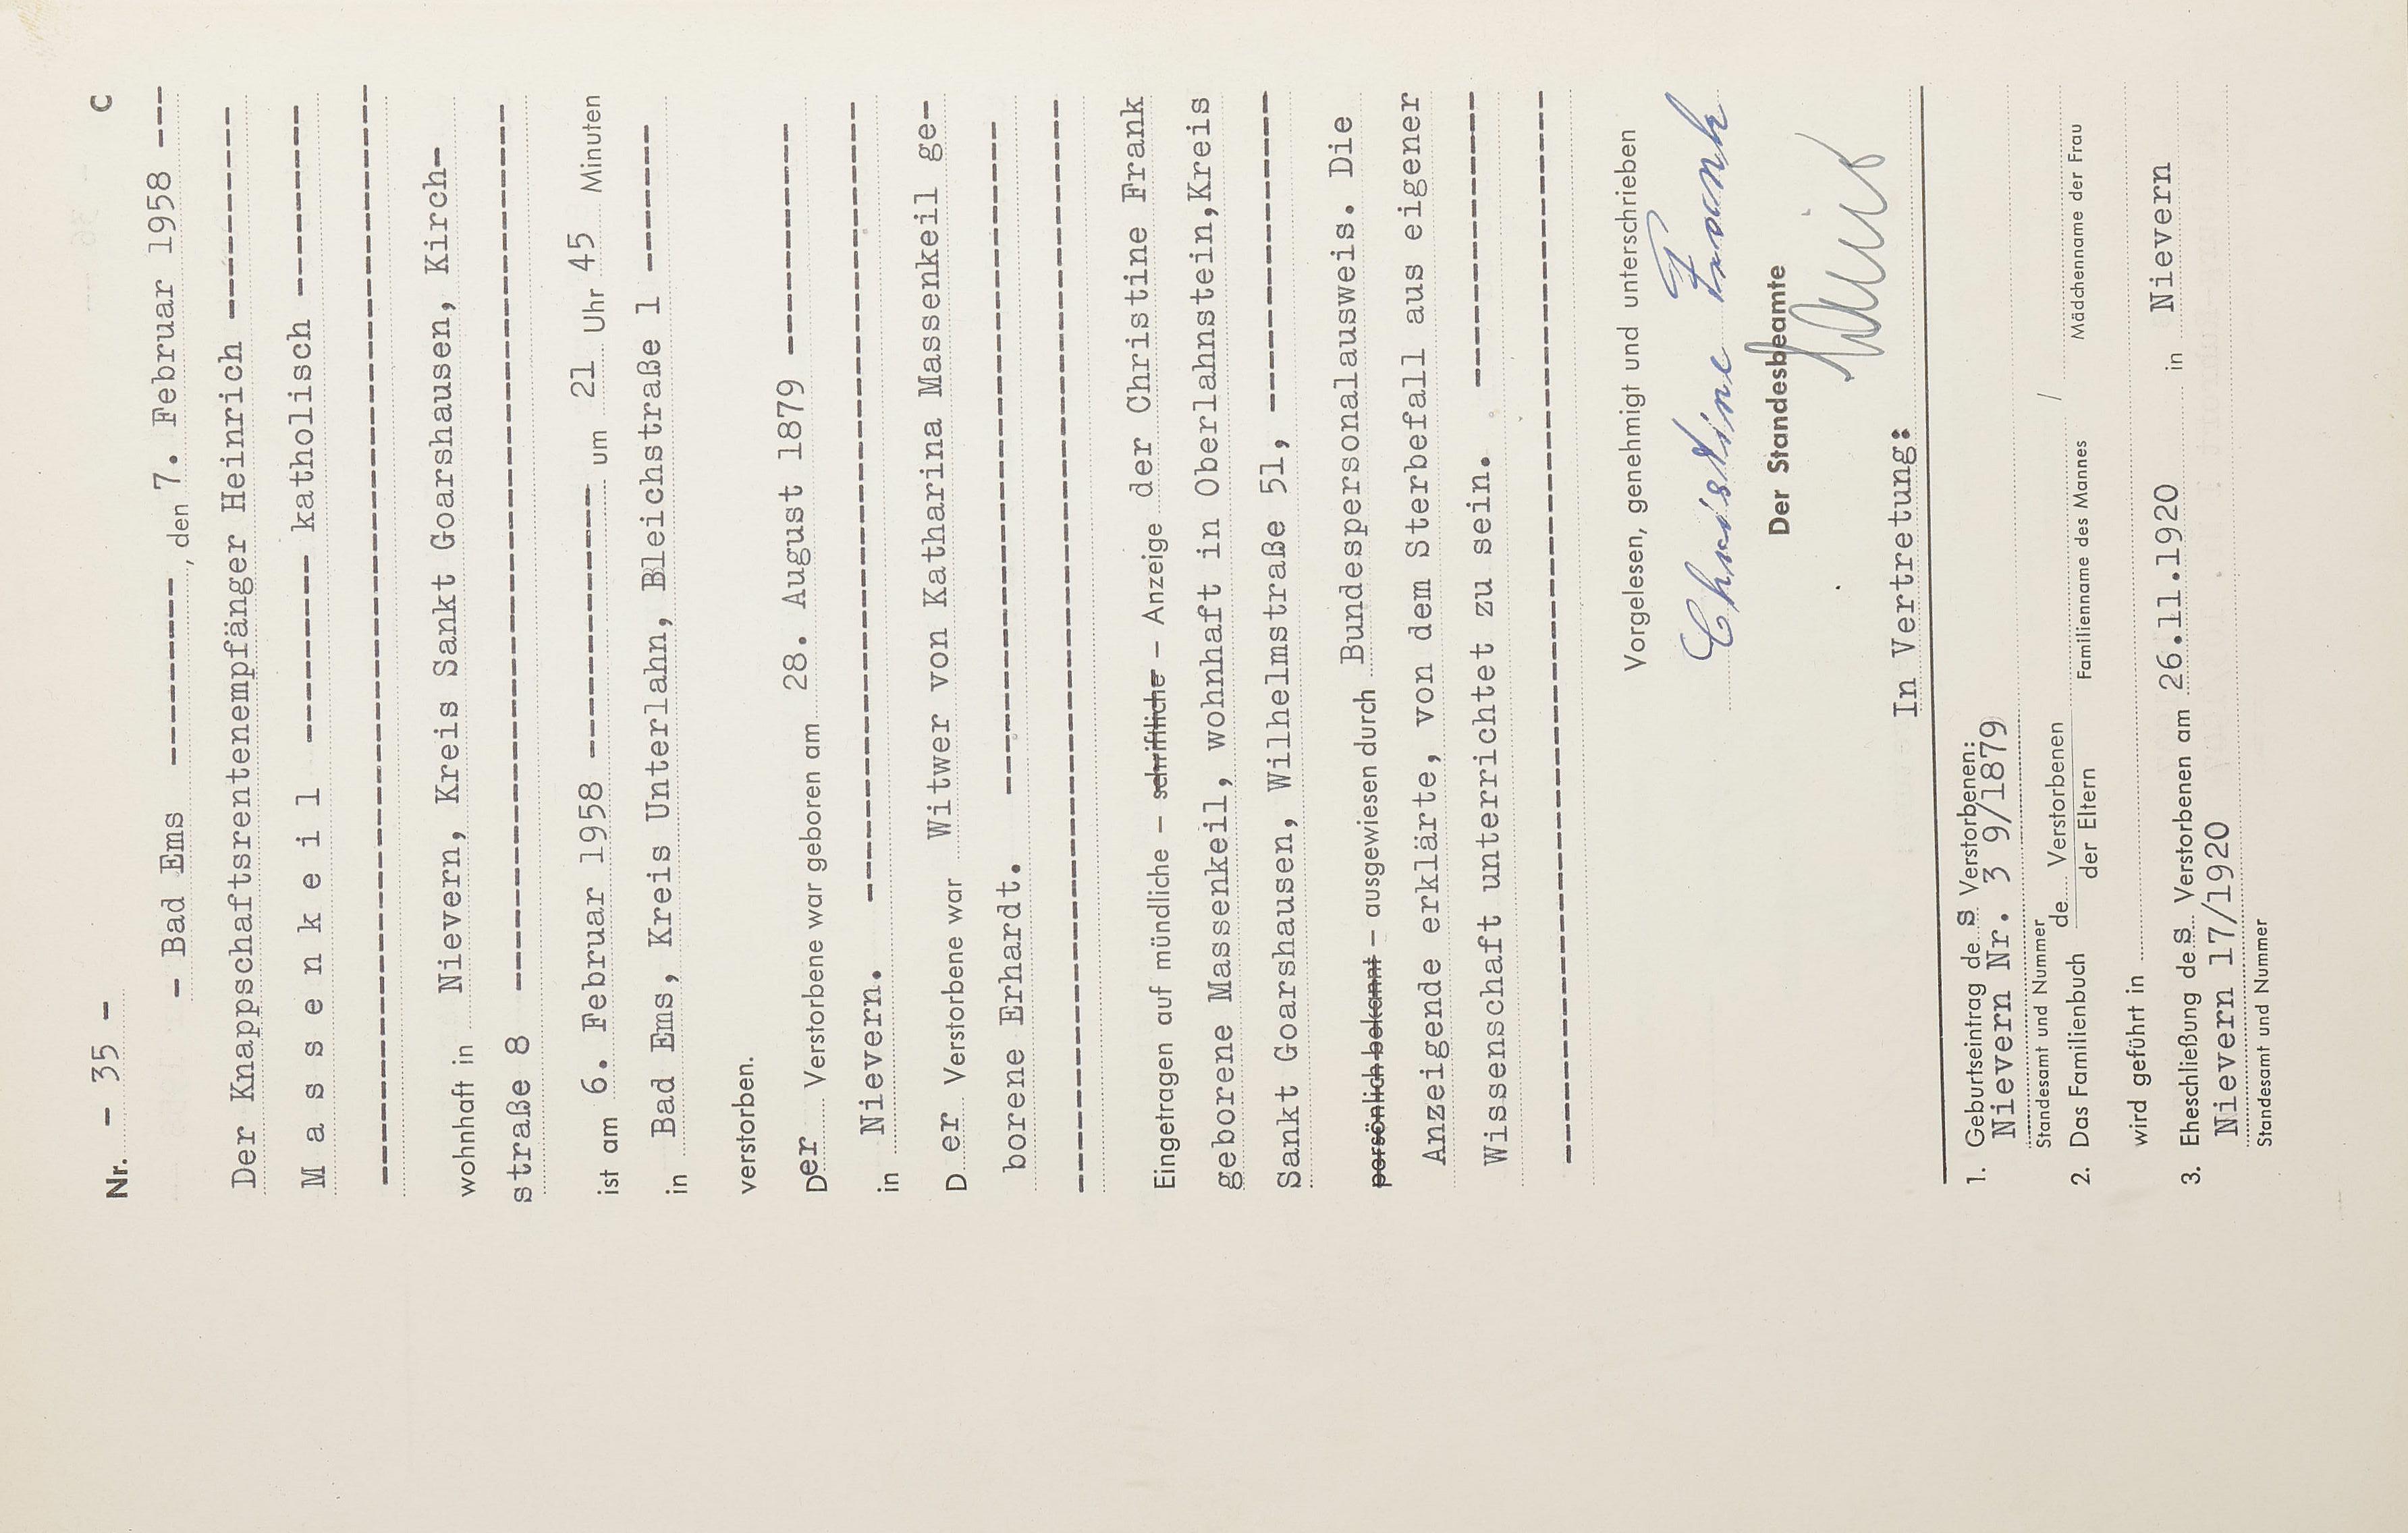 Nr. - 35 - C
- Bad Ems ----------, den 7. Februar 1958 ---
Der Knappschaftsrentenempfänger Heinrich ----------
M a s s e n k e i l ---------- katholisch ---------
----------------------------------------
wohnhaft in Nievern, Kreis Sankt Goarshausen, Kirch-
straße 8 ----------------------------------------
ist am 6. Februar 1958 -------------- um 21 Uhr 45 Minuten
in Bad Ems, Kreis Unterlahn, Bleichstraße 1 -------
verstorben.
Der Verstorbene war geboren am 28. August 1879 -----------
in Nievern. ----------------------------------------
D er Verstorbene war Witwer von Katharina Massenkeil ge-
borene Erhardt. --------------------------------
----------------------------------------
Eingetragen auf mündliche – schriftliche – Anzeige der Christine Frank
geborene Massenkeil, wohnhaft in Oberlahnstein,Kreis
Sankt Goarshausen, Wilhelmstraße 51, ---------------
persönlich bekannt – ausgewiesen durch Bundespersonalausweis. Die
Anzeigende erklärte, von dem Sterbefall aus eigener
Wissenschaft unterrichtet zu sein. --------------
----------------------------------------
Vorgelesen, genehmigt und unterschrieben
Christine Frank
Der Standesbeamte
In Vertretung:
1. Geburtseintrag de s Verstorbenen:
Nievern Nr. 3 9/1879
Standesamt und Nummer
2. Das Familienbuch de Verstorbenen / der Eltern
Familienname des Mannes / Mädchenname der Frau
wird geführt in
3. Eheschließung des Verstorbenen am 26.11.1920 in Nievern
Nievern 17/1920
Standesamt und Nummer